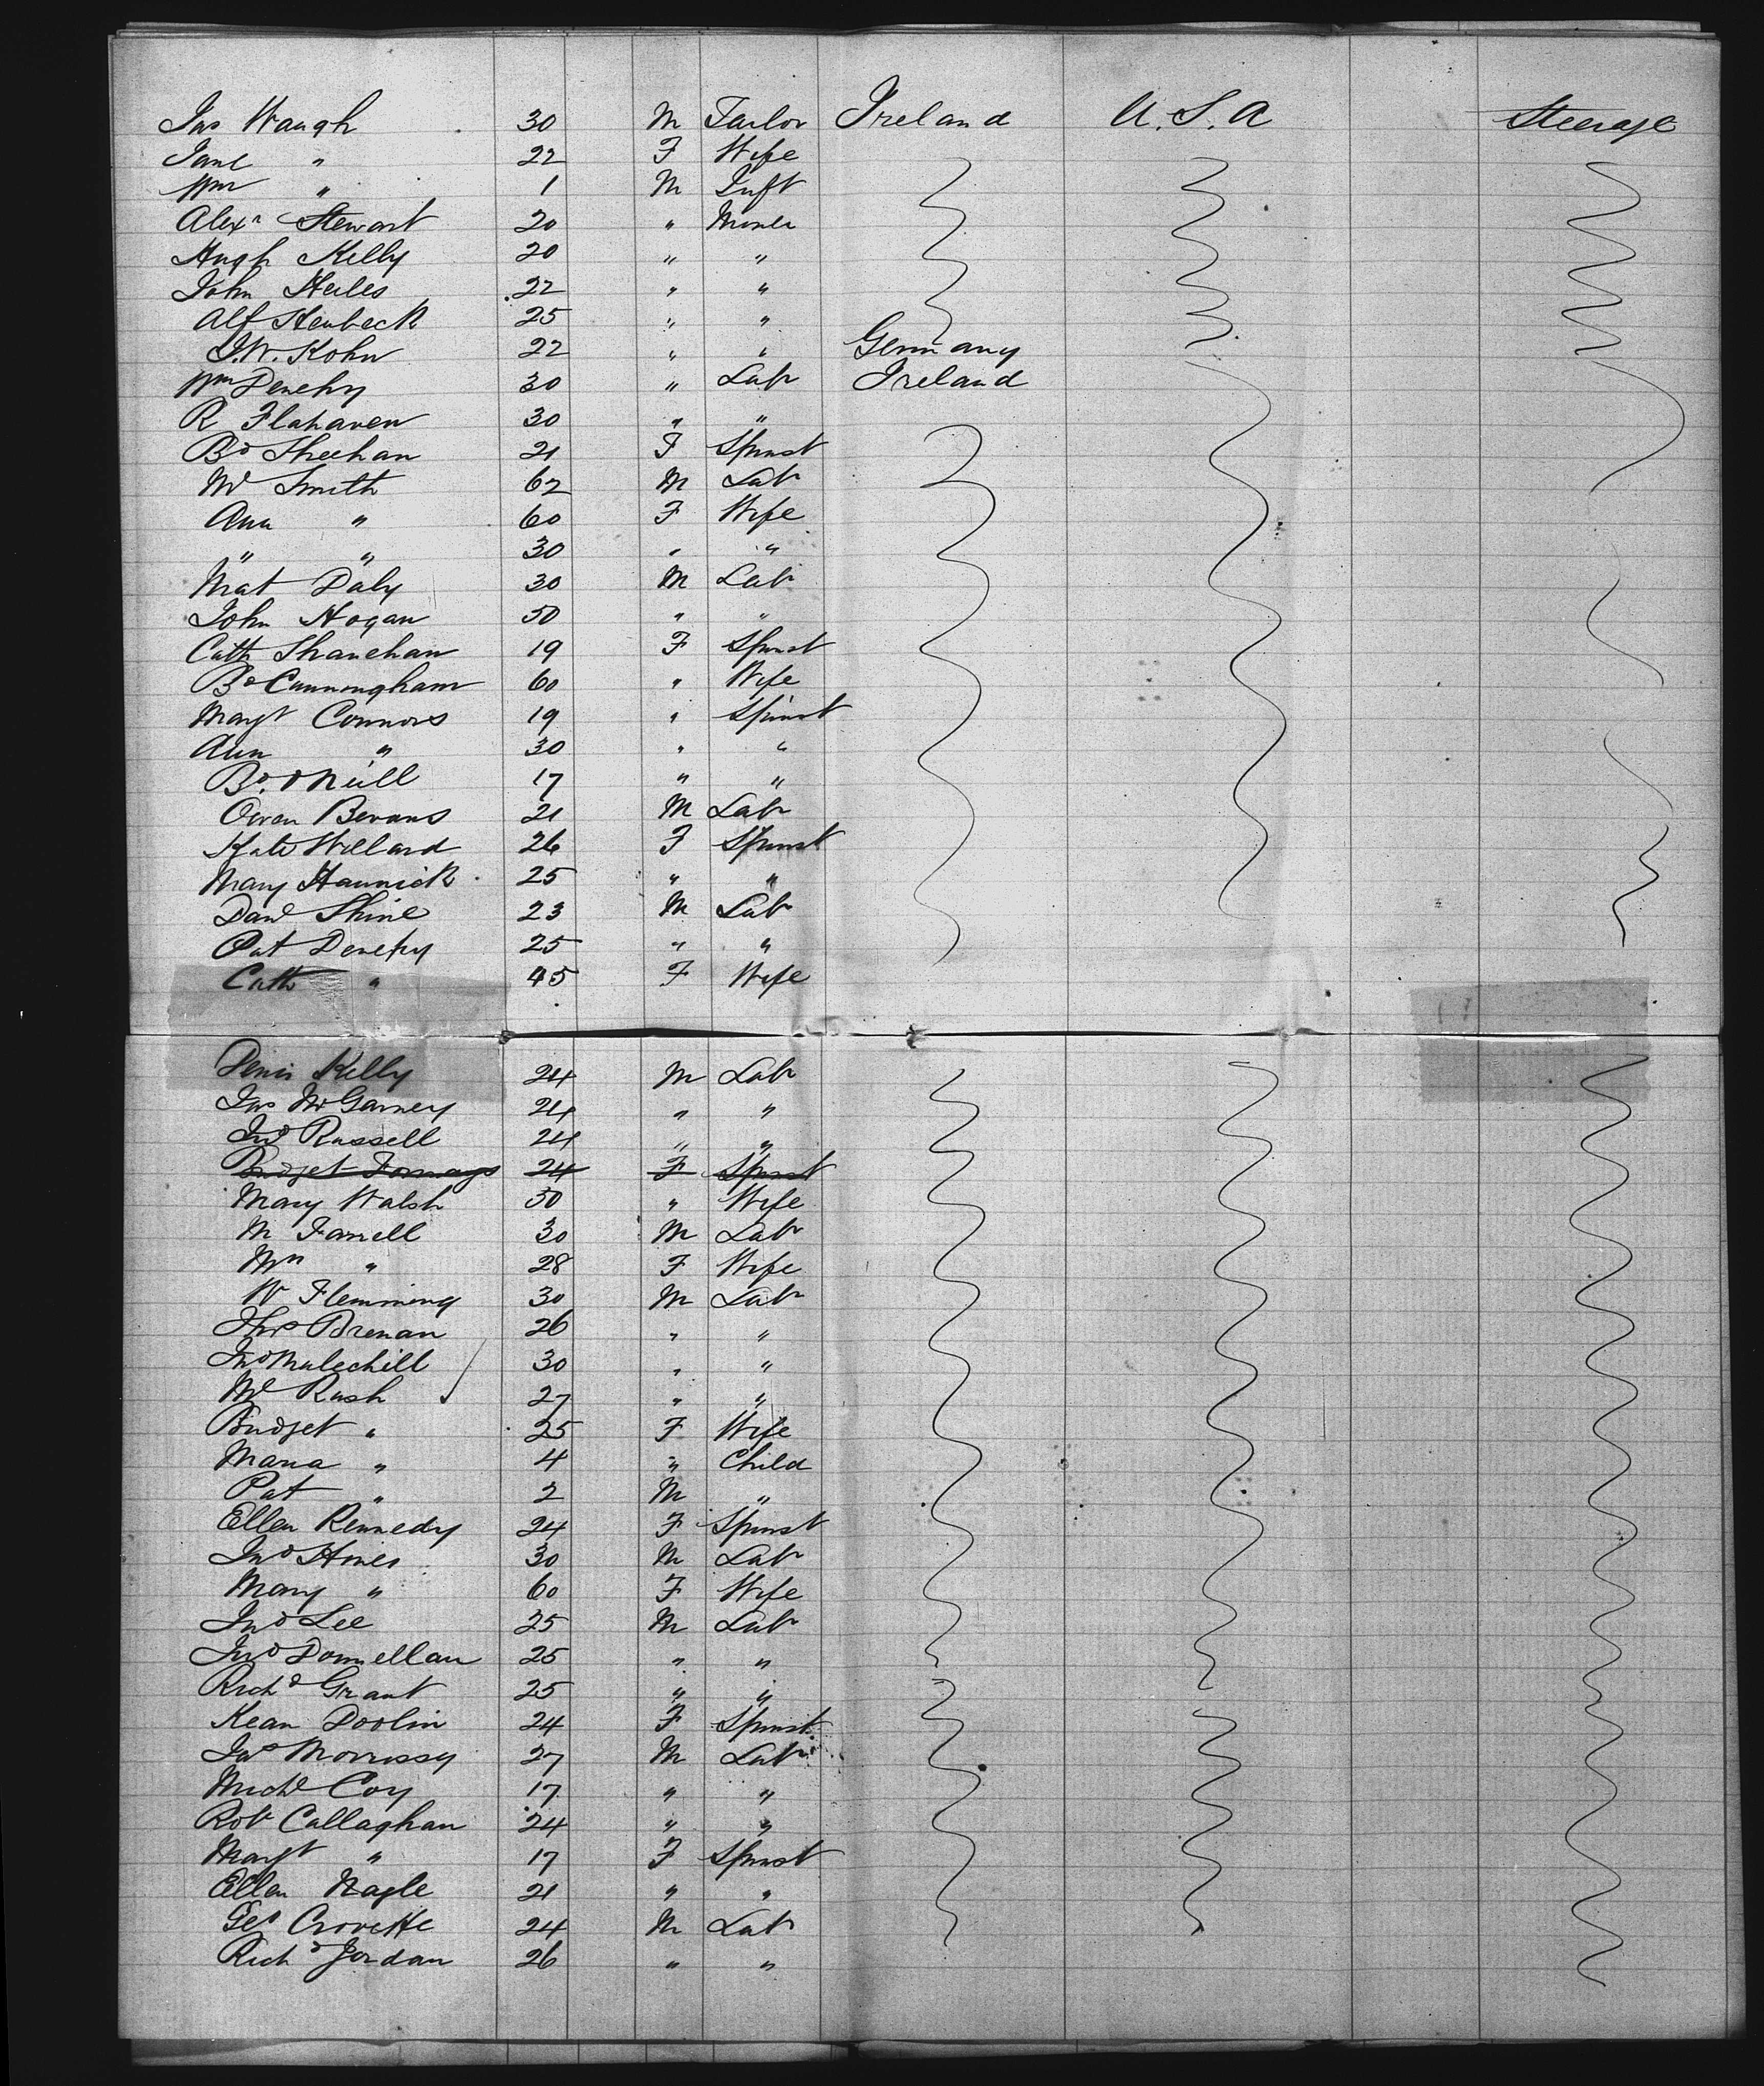 Jas Waugh 30 M Tailor Ireland U.S.A Steerage
Jane " 22 F Wife
Wm " 1 M Inft
Alexr Stewart 20 " Miner
Hugh Kelly 20 " "
John Heiles 22 " "
Alf Henbeck 25 " "
J.W. Kohn 22 " " Germany
Wm Denehy 30 " Lab Ireland
R Flahaven 30 " "
Bd Sheehan 21 F Spinst
Ml Smith 62 M Lab
Ann " 60 F Wife
" " 30 " "
Mat Daly 30 M Lab
John Hogan 50 " "
Cath Shanehan 19 F Spinst
Bd Cunningham 60 " Wife
Margt Connors 19 " Spinst
Ann " 30 " "
Bd. O Neill 17 " "
Owen Bevans 21 M Lab
Kate Willard 26 F Spinst
Mary Hannick 25 " "
Danl Shine 23 M Lab
Pat Denehy 25 " "
Cath " 45 F Wife
Denis Kelly 24 M Lab
Jas McGarney 24 " "
Jno Russell 24 " "
Bridget 24 F Spinst
Mary Walsh 50 " Wife
M Farrell 30 M Lab
Mrs " 28 F Wife
W Flemming 30 M Lab
Thos Brenan 26 " "
Jno Mulechill 30 " "
Ml Rush 27 " "
Bridget " 25 F Wife
Maria " 4 " Child
Pat " 2 M "
Ellen Kennedy 24 F Spinst
Jno Hines 30 M Lab
Mary " 60 F Wife
Jno Lee 25 M Lab
Jno Donnellan 25 " "
Richd Grant 25 " "
Kean Doolin 24 F Spinst
Jas Morrissy 27 M Lab
Michl Coy 17 " "
Robt Callaghan 24 " "
Margt " 17 F Spinst
Ellen Nagle 21 " "
Geo Crovette 24 M Lab
Richd Jordan 26 " "